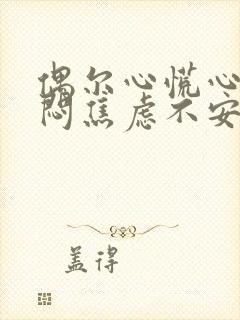 偶尔心慌心
闷焦虑不安
盖得